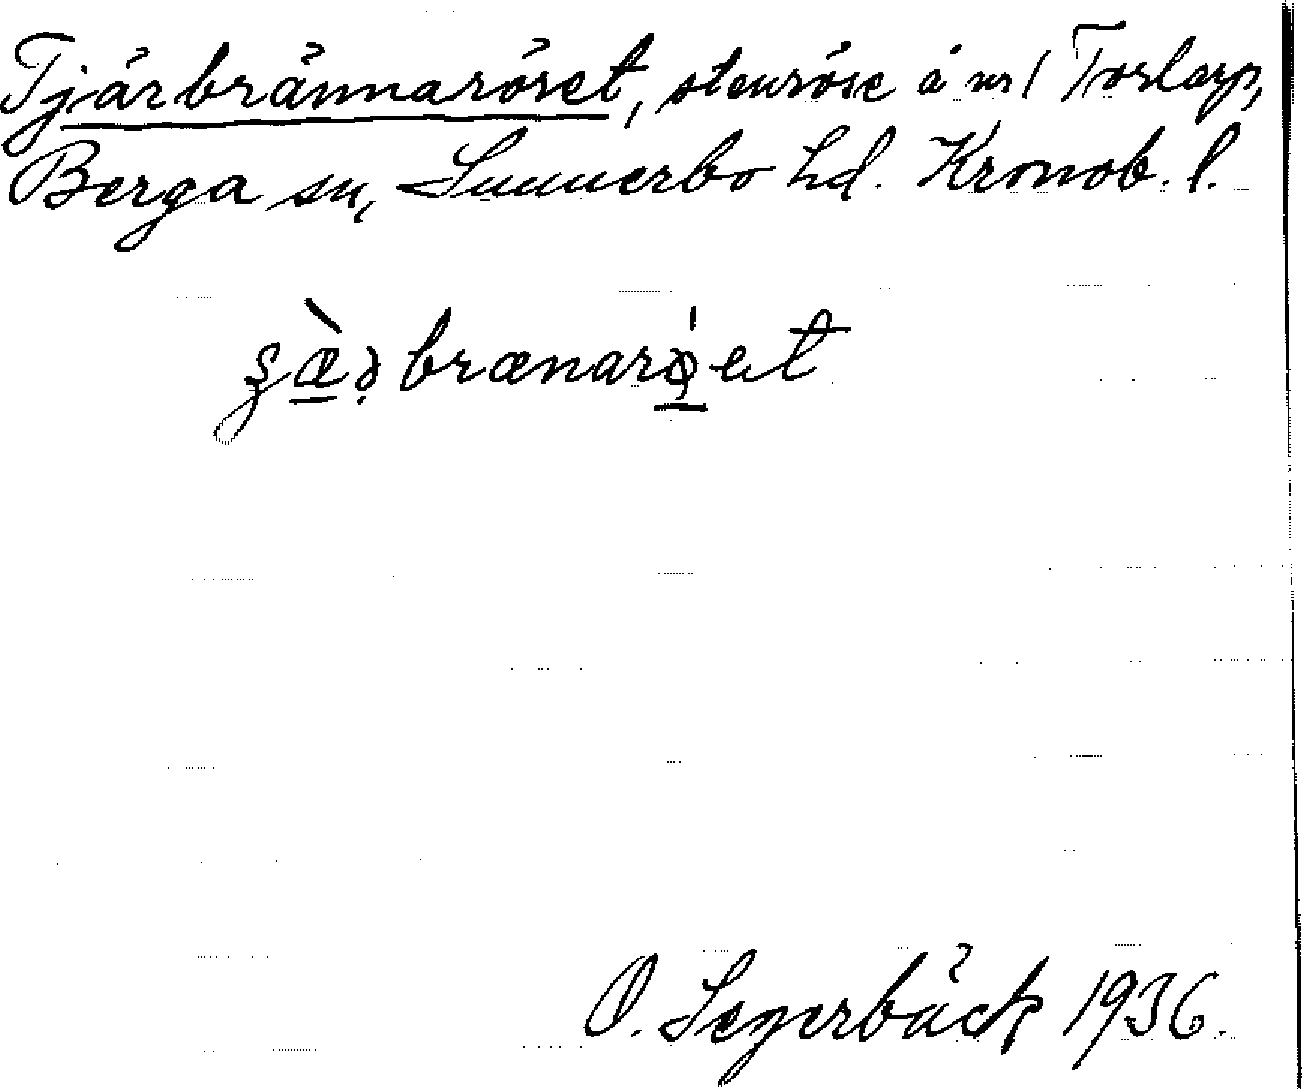 Tjärbrännaröset, stenröse å nr 1 Torlarp,
Berga sn, Sunnerbo hd. Kronob. l.
O. Segerbäck 1936.